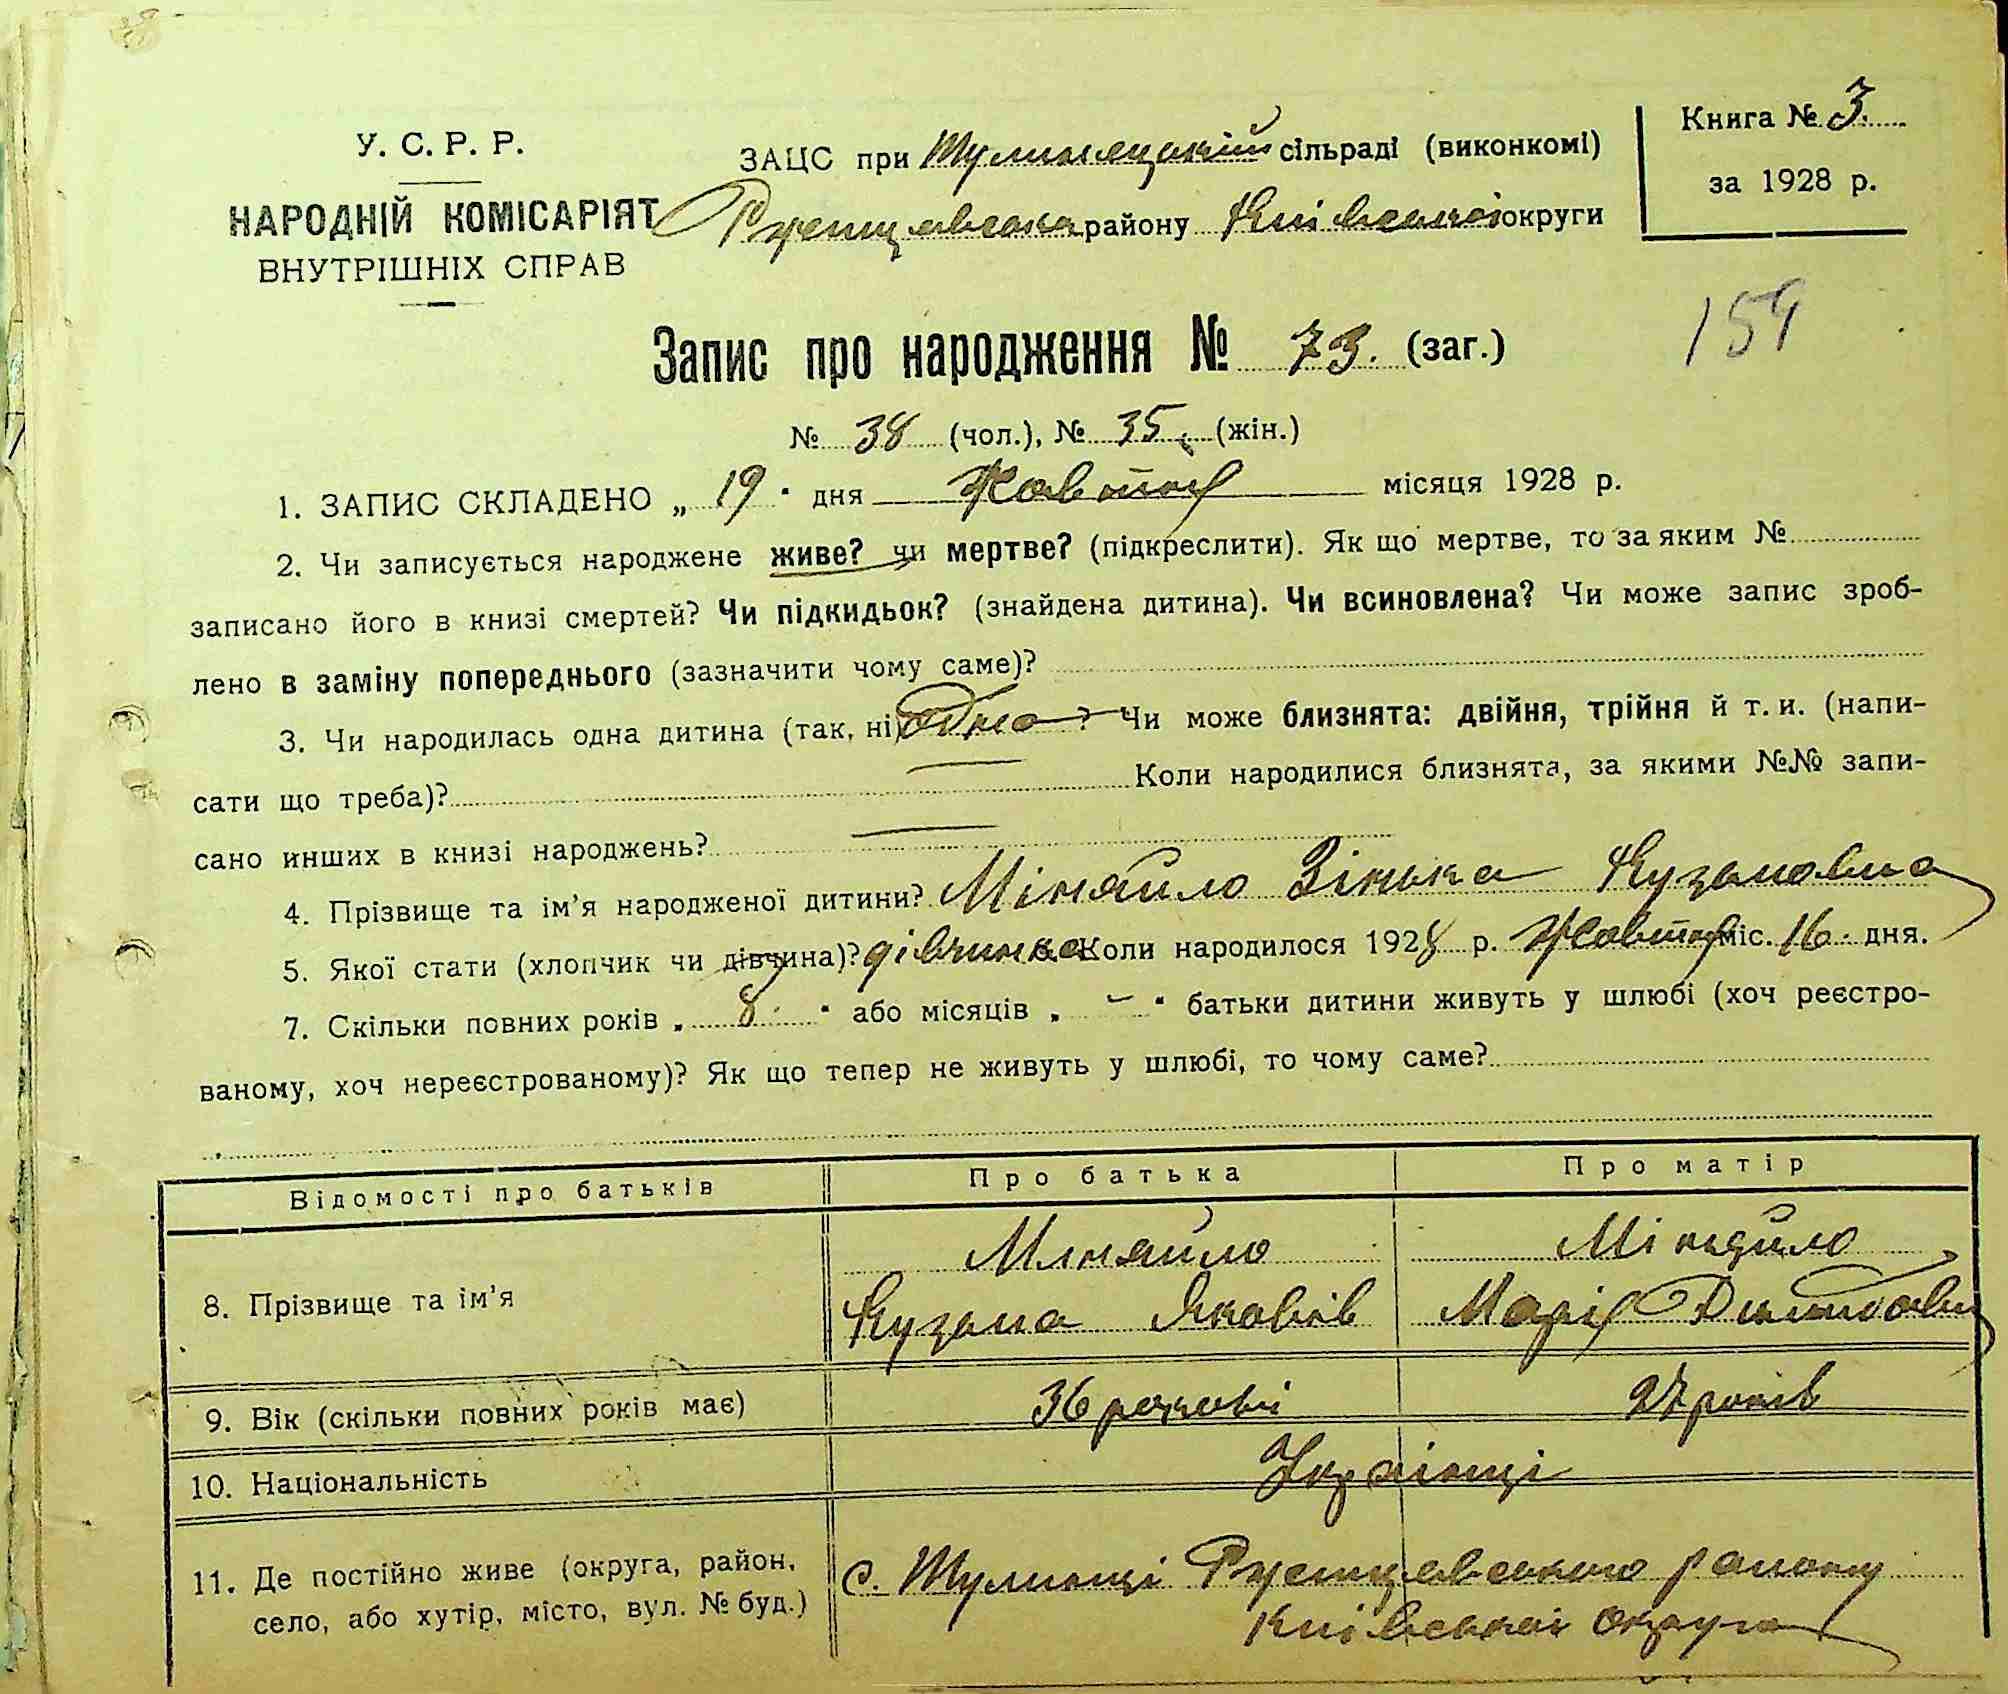 У. С. Р. Р.
НАРОДНІЙ КОМІСАРІЯТ
ВНУТРІШНІХ СПРАВ
ЗАЦС при Тулинецькій сільраді (виконкомі)
району Київської округи
Книга № 3.
за 1928 р.
159
Запис про народження № 73. (заг.)
№ 38 (чол.), № 35 (жін.)
1. ЗАПИС СКЛАДЕНО „ 19 " дня Жовтня місяця 1928 р.
2. Чи записується народжене живе? чи мертве? (підкреслити). Як що мертве, то за яким №
записано його в книзі смертей? Чи підкидьок? (знайдена дитина). Чи всиновлена? Чи може запис зроб-
лено в заміну попереднього (зазначити чому саме)?
3. Чи народилась одна дитина (так, ні) одна ? Чи може близнята: двійня, трійня й т. и. (напи-
сати що треба)? — Коли народилися близнята, за якими №№ запи-
сано инших в книзі народжень? —
4. Прізвище та ім'я народженої дитини? Міняйло Зінька Кузьмовна
5. Якої стати (хлопчик чи дівчина)? дівчинка Коли народилося 1928 р. Жовтня міс. 16. дня.
7. Скільки повних років „ 8 " або місяців „ – " батьки дитини живуть у шлюбі (хоч реєстро-
ваному, хоч нереєстрованому)? Як що тепер не живуть у шлюбі, то чому саме?
Відомості про батьків Про батька Про матір
8. Прізвище та ім'я Міняйло Міняйло
Кузьма Яковів Марія
9. Вік (скільки повних років має) 36 27 років
10. Національність Українці
11. Де постійно живе (округа, район, с. Тулинці району
село, або хутір, місто, вул. № буд.) Київської округи